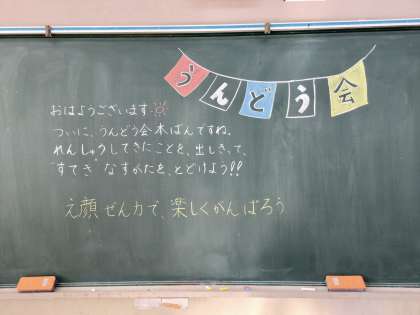 うんどう会
おはようございます
ついに、うんどう会本ばんですね。
れんしゅうしてきたことを、出しきって、
"すてき"なすがたを、とどけよう!!
え顔ぜん力で、楽しくがんばろう